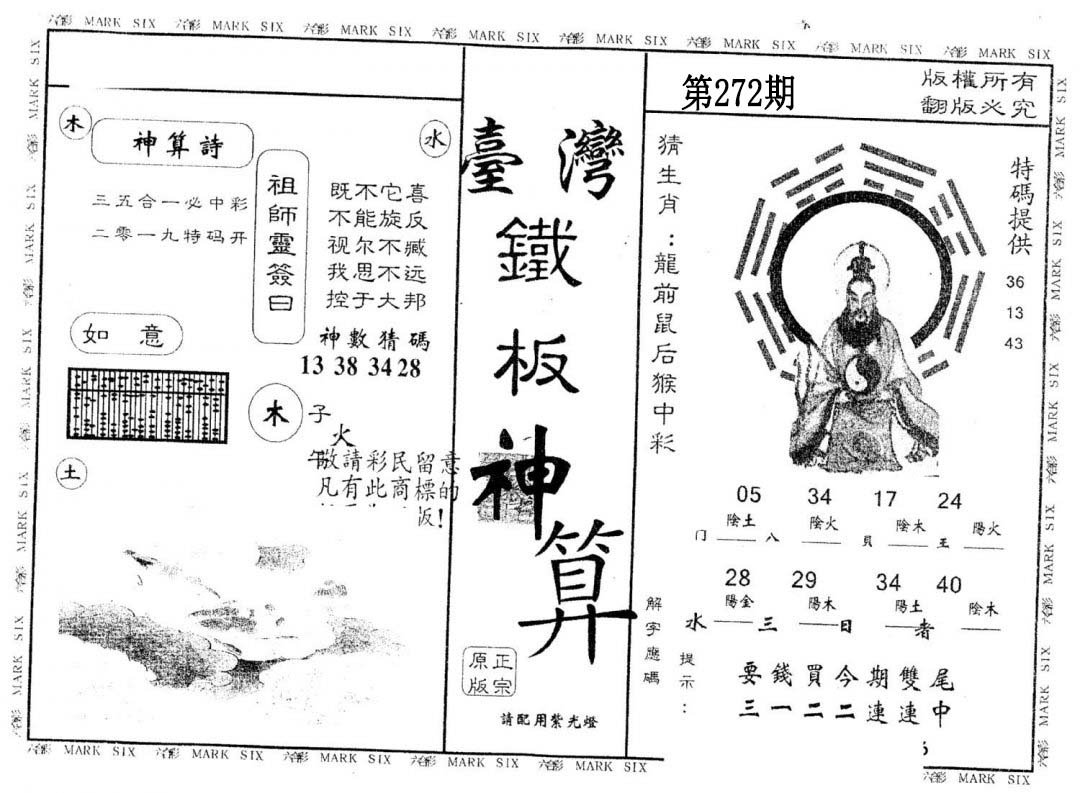 六合彩 MARK SIX 六合彩 MARK SIX 六合彩 MARK SIX 六合彩 MARK SIX 六合彩 MARK SIX 六合彩 MARK SIX 六合彩 MARK SIX 六合彩 MARK SIX
木
神算詩
水
三五合一必中彩
二零一九特码开
祖師靈簽曰
既不它喜
不能旋反
视尔不臧
我思不远
控于大邦
神數猜碼
13 38 34 28
如意
木
子
火
午
敬請彩民留意
凡有此商標的
版!
土
臺灣
鐵
板
神
算
正宗
原版
請配用紫光燈
第272期
版權所有
翻版必究
猜生肖:龍前鼠后猴中彩
特碼提供
36
13
43
05 34 17 24
陰土 陰火 陰木 陽火
门 八 貝 王
28 29 34 40
陽金 陽木 陽土 陰木
水 三 日 者
解字應碼
提示:
要錢買今期雙尾
三一二二連連中
六合彩 MARK SIX 六合彩 MARK SIX 六合彩 MARK SIX 六合彩 MARK SIX 六合彩 MARK SIX 六合彩 MARK SIX